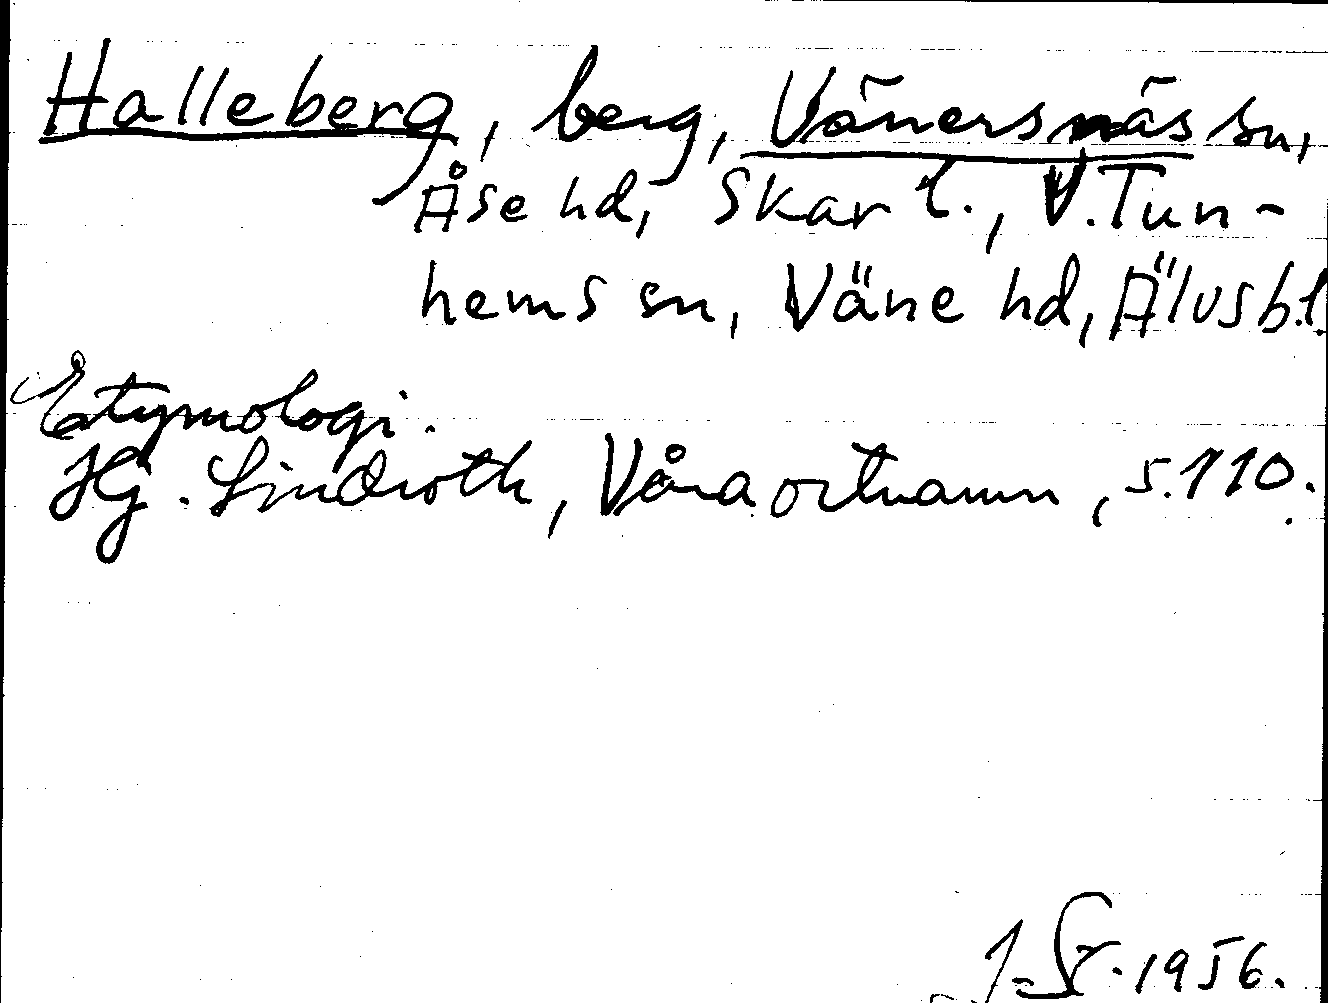 Halleberg, berg, Vänersnäs sn,
Åse hd, Skar l., V. Tun-
hems sn, Väne hd, Älvsb.l.
Etymologi.
Hj. Lindroth, Våra ortnamn, s. 110.
1956.